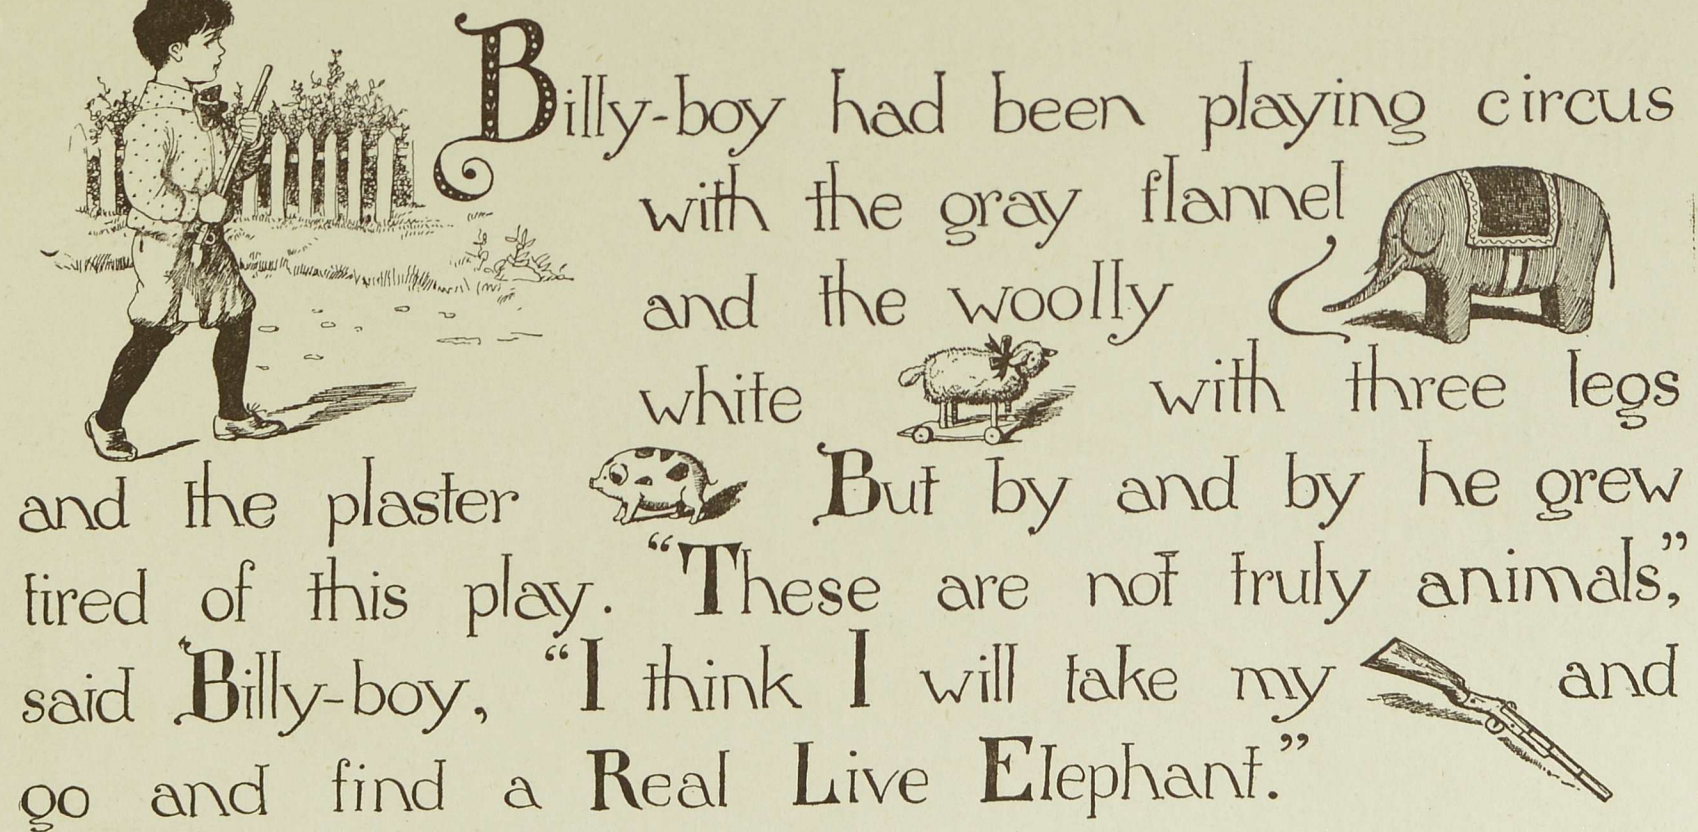 Billy-boy had been playing circus
with the gray flannel
and the woolly
white with three legs
and the plaster But by and by he grew
tired of this play. “These are not truly animals,”
said Billy-boy, “I think I will take my and
go and find a Real Live Elephant.”